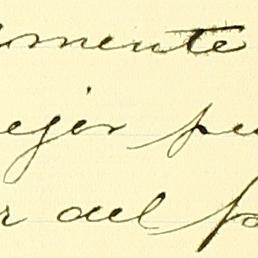 mente
ejor pu
r del p